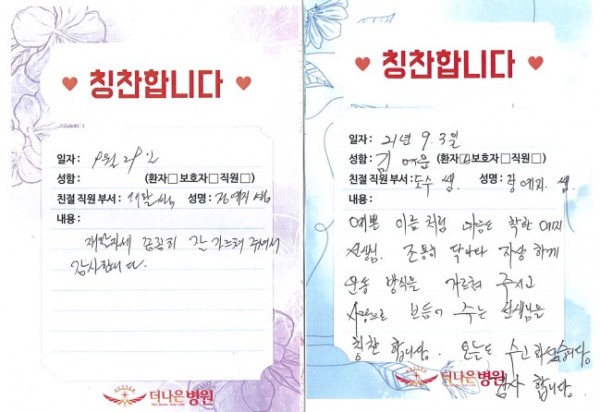 ♥ 칭찬합니다 ♥
일자 : 9월 29일
성함 : (환자□ 보호자□ 직원□)
친절 직원 부서 : 성명 : 예지
내용 :
꼼꼼히 잘 가르쳐 주셔서
감사합니다.
더나은병원
♥ 칭찬합니다 ♥
일자 : 21년 9. 3일
성함 : 김 (환자□ 보호자□ 직원□)
친절 직원 부서 : 도수 쌤. 성명 : 예지. 쌤.
내용 :
예쁜 이름 처럼 마음도 착한 예지
선생님. 자상 하게
운동 방식을 가르쳐 주시고
사랑으로 보듬어 주는 선생님을
칭찬 합니다. 오늘도 수고하셨습니다.
감사 합니다.
더나은병원